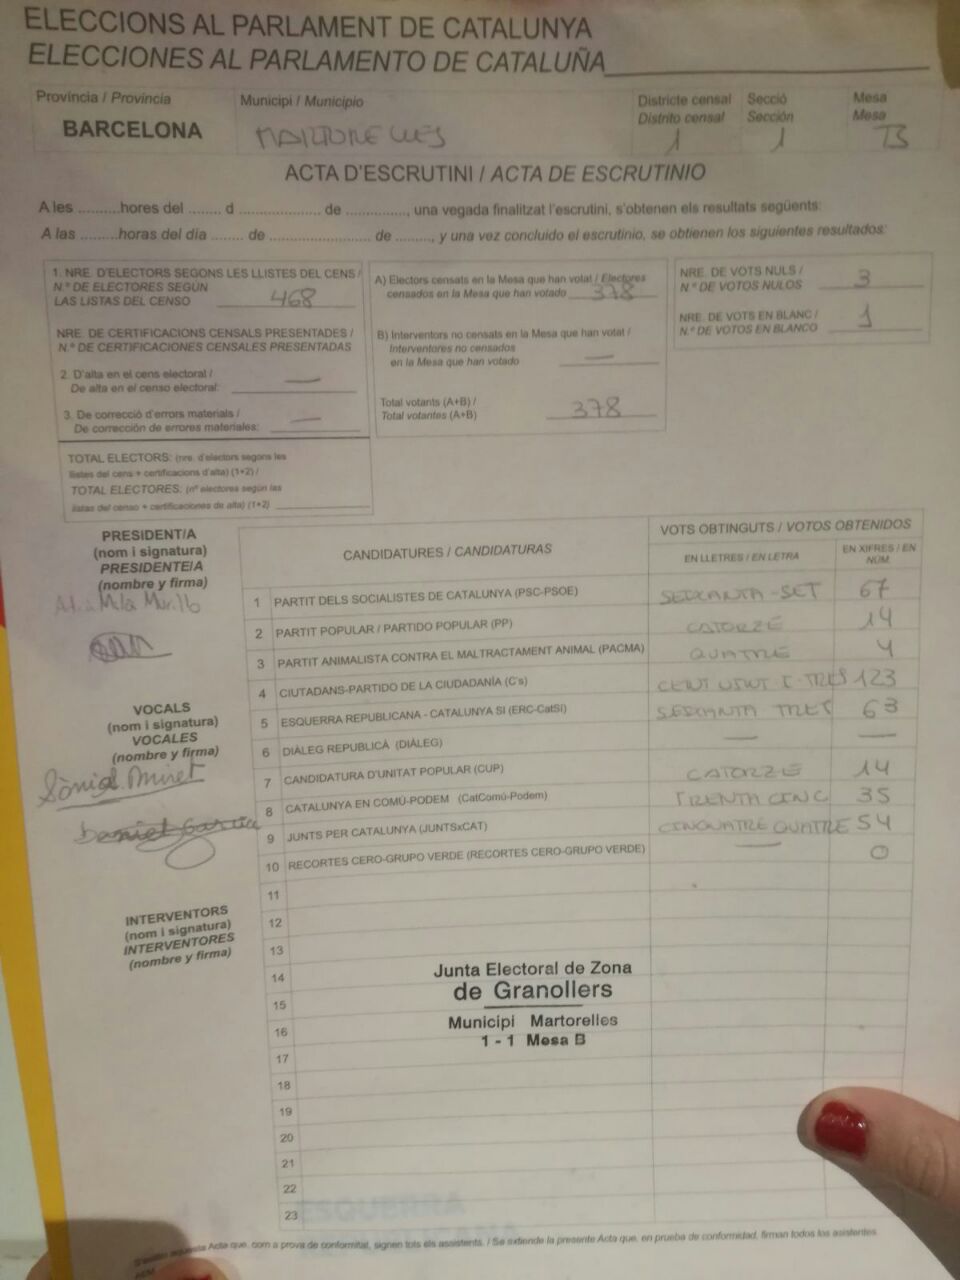 ELECCIONS AL PARLAMENT DE CATALUNYA
ELECCIONES AL PARLAMENTO DE CATALUÑA
Província / Provincia
BARCELONA
Municipi / Municipio
MARTORELLES
Districte censal
Distrito censal
1
Secció
Sección
1
Mesa
Mesa
B
ACTA D'ESCRUTINI / ACTA DE ESCRUTINIO
A les ..........hores del ........ d ..................... de ................, una vegada finalitzat l'escrutini, s'obtenen els resultats següents:
A las .........horas del día ........ de .......................... de ........., y una vez concluido el escrutinio, se obtienen los siguientes resultados:
1. NRE. D'ELECTORS SEGONS LES LLISTES DEL CENS /
N.º DE ELECTORES SEGÚN
LAS LISTAS DEL CENSO 468
NRE. DE CERTIFICACIONS CENSALS PRESENTADES /
N.º DE CERTIFICACIONES CENSALES PRESENTADAS
2. D'alta en el cens electoral / —
De alta en el censo electoral:
3. De correcció d'errors materials / —
De corrección de errores materiales:
TOTAL ELECTORS: (nre. d'electors segons les
llistes del cens + certificacions d'alta) (1+2) /
TOTAL ELECTORES: (nº electores según las
listas del censo + certificaciones de alta) (1+2)
A) Electors censats en la Mesa que han votat / Electores
censados en la Mesa que han votado 378
B) Interventors no censats en la Mesa que han votat /
Interventores no censados
en la Mesa que han votado —
Total votants (A+B) /
Total votantes (A+B) 378
NRE. DE VOTS NULS /
N.º DE VOTOS NULOS 3
NRE. DE VOTS EN BLANC /
N.º DE VOTOS EN BLANCO 1
PRESIDENT/A
(nom i signatura)
PRESIDENTE/A
(nombre y firma)
VOCALS
(nom i signatura)
VOCALES
(nombre y firma)
Sònia Muret
Daniel García
INTERVENTORS
(nom i signatura)
INTERVENTORES
(nombre y firma)
CANDIDATURES / CANDIDATURAS
VOTS OBTINGUTS / VOTOS OBTENIDOS
EN LLETRES / EN LETRA
EN XIFRES / EN NÚM.
1 PARTIT DELS SOCIALISTES DE CATALUNYA (PSC-PSOE) SEIXANTA-SET 67
2 PARTIT POPULAR / PARTIDO POPULAR (PP) CATORZE 14
3 PARTIT ANIMALISTA CONTRA EL MALTRACTAMENT ANIMAL (PACMA) QUATRE 4
4 CIUTADANS-PARTIDO DE LA CIUDADANÍA (C's) CENT VINT I-TRES 123
5 ESQUERRA REPUBLICANA - CATALUNYA SÍ (ERC-CatSí) SEIXANTA TRES 63
6 DIÀLEG REPUBLICÀ (DIÀLEG) — —
7 CANDIDATURA D'UNITAT POPULAR (CUP) CATORZE 14
8 CATALUNYA EN COMÚ-PODEM (CatComú-Podem) TRENTA CINC 35
9 JUNTS PER CATALUNYA (JUNTSxCAT) CINQUATRE QUATRE 54
10 RECORTES CERO-GRUPO VERDE (RECORTES CERO-GRUPO VERDE) — 0
11
12
13
14
15
16
17
18
19
20
21
22
23
Junta Electoral de Zona
de Granollers
Municipi Martorelles
1 - 1 Mesa B
ESQUERRA
aquesta Acta que, com a prova de conformitat, signen tots els assistents. / Se extiende la presente Acta que, en prueba de conformidad, firman todos los asistentes.